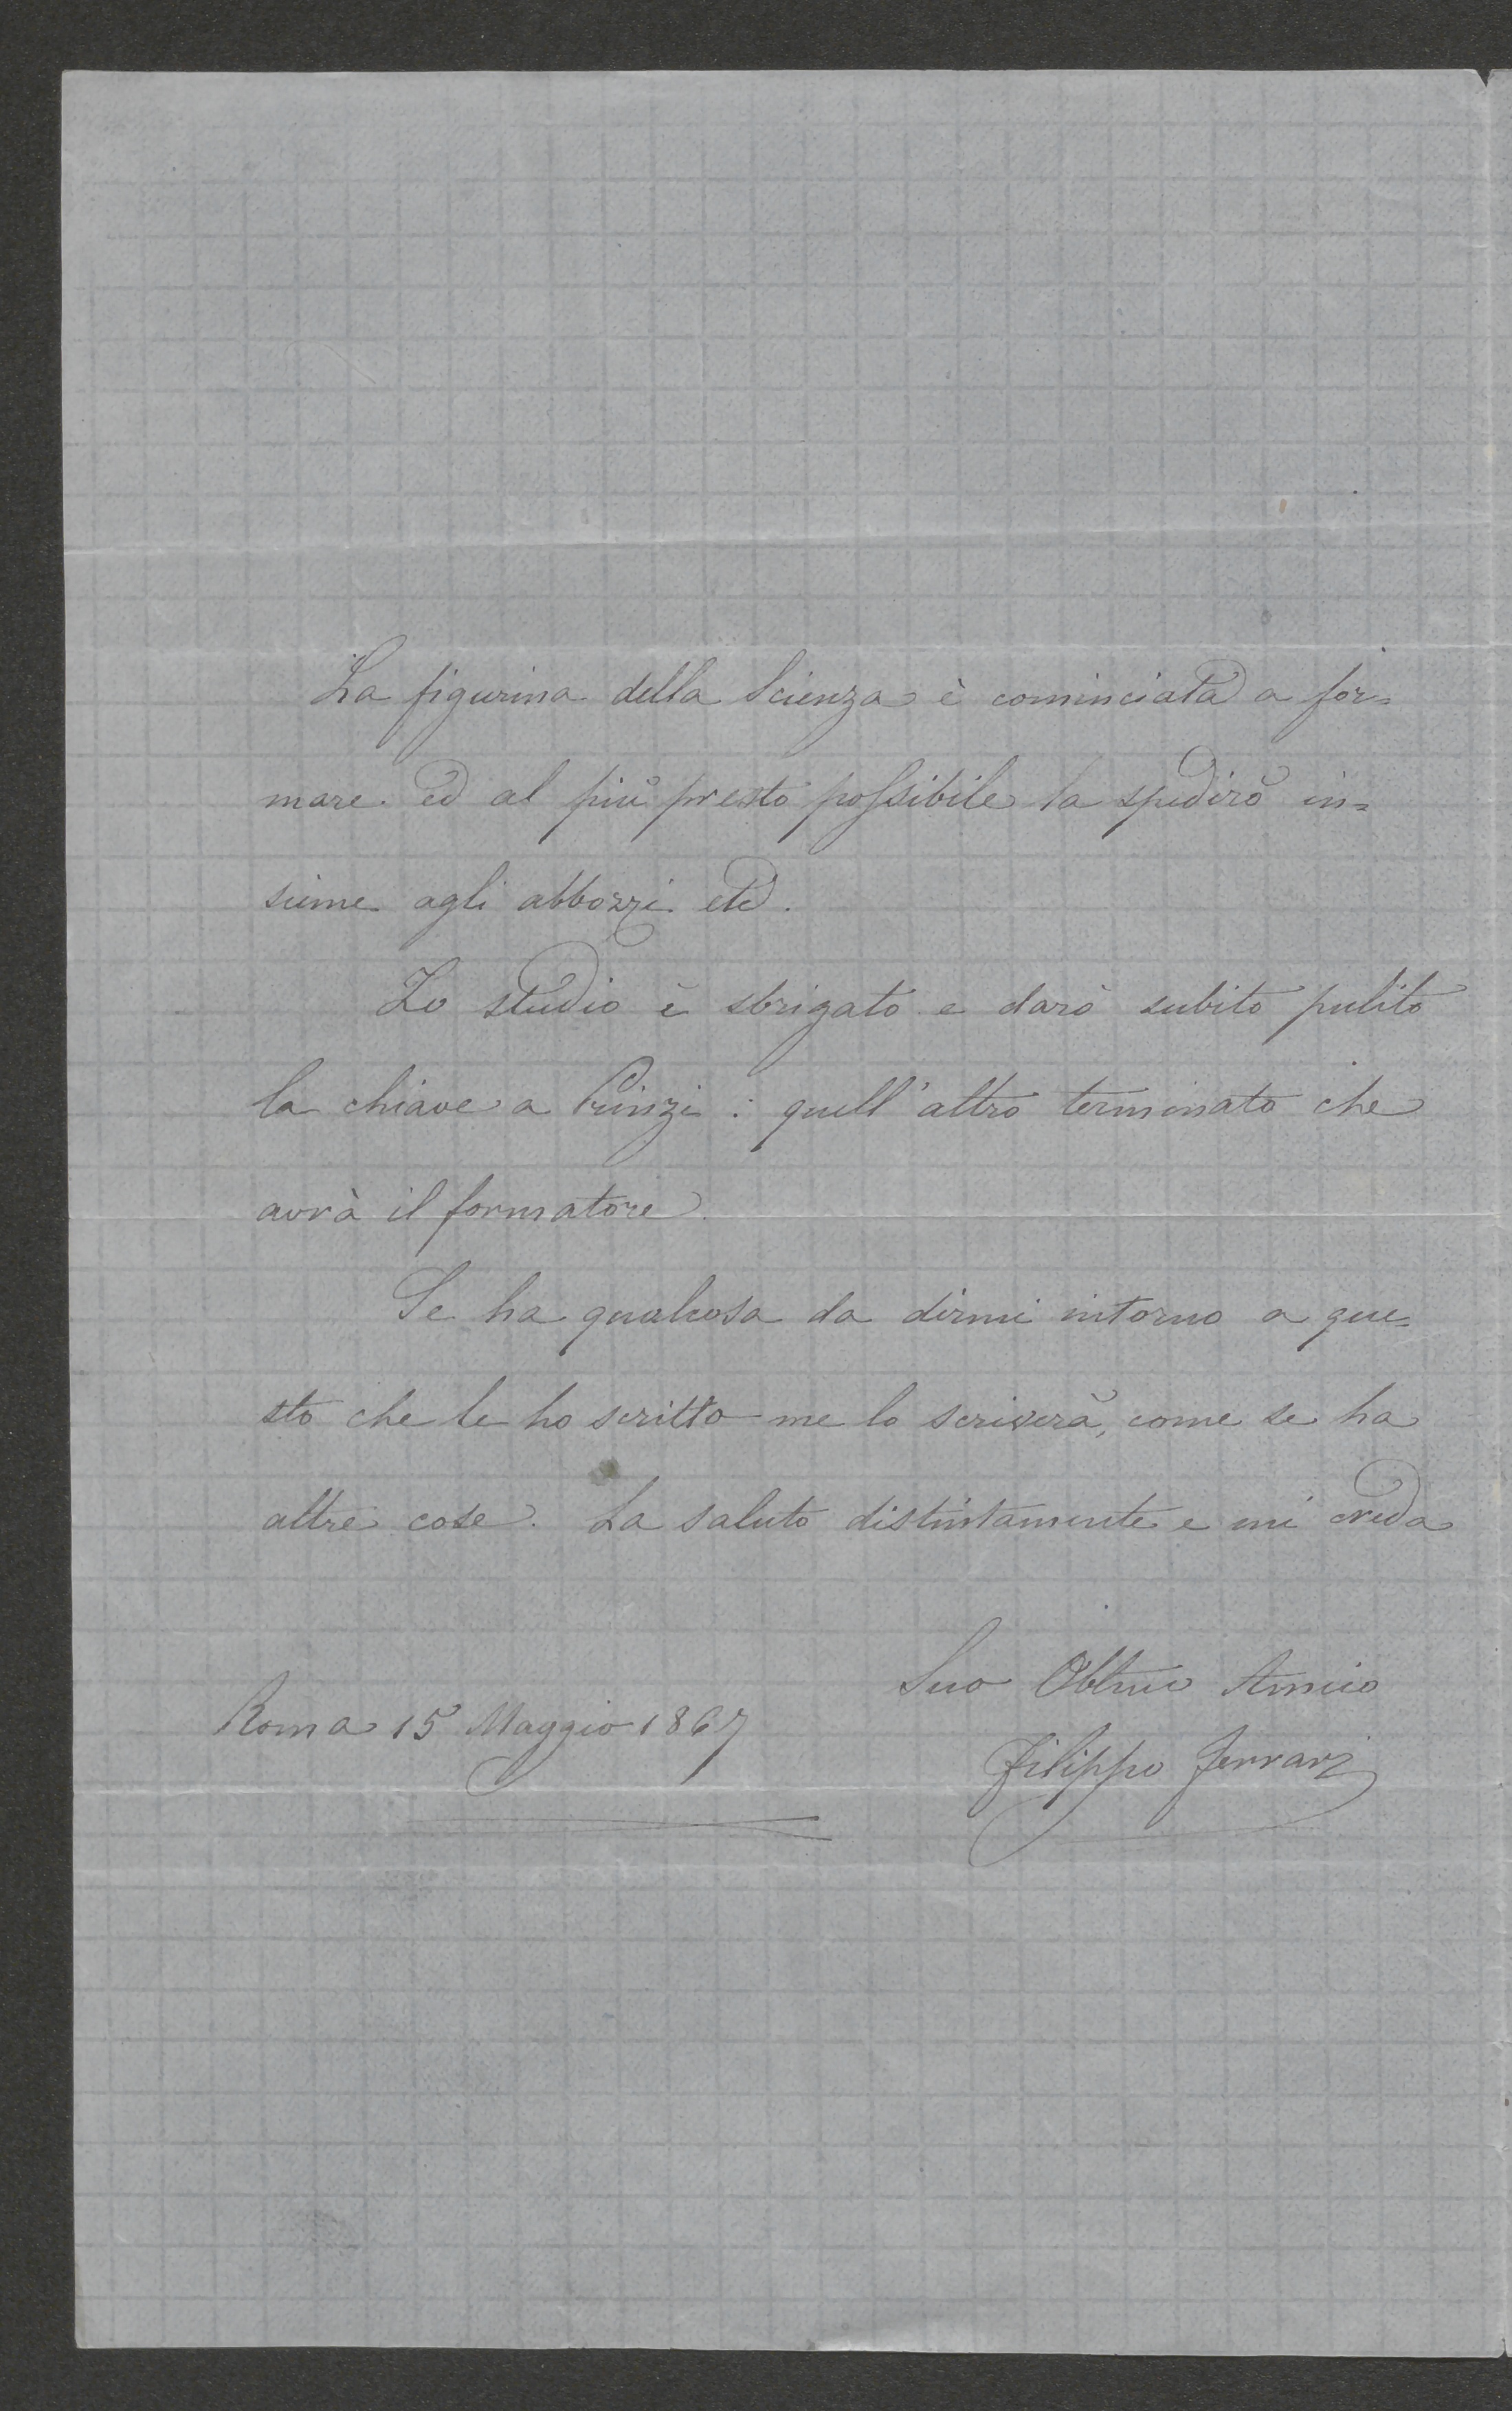 La figurina della Scienza è cominciata a for=
mare. ed al più presto possibile la spedirò in=
sieme agli abbozzi etc.
Lo studio è sbrigato e darò subito pulito
la chiave a : quell'altro terminato che
avrà il formatore.
Se ha qualcosa da dirmi intorno a que=
sto che le ho scritto me lo scriverà, come se ha
altre cose. La saluto distintamente e mi creda
Suo Obblmo Amico
Roma 15 Maggio 1867
Filippo Ferrari